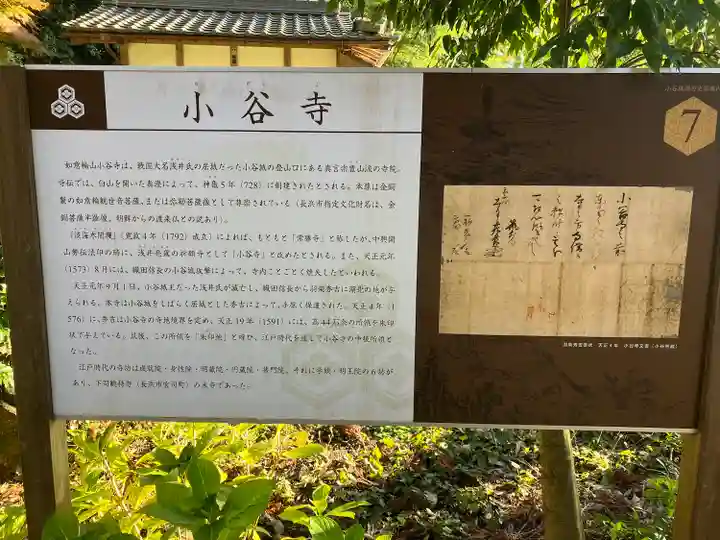 小谷寺
如意輪山小谷寺は、戦国大名浅井氏の居城だった小谷城の登山口にある真言宗豊山派の寺院。
寺伝では、白山を開いた泰澄によって、神亀5年(728)に創建されたとされる。本尊は金銅
製の如意輪観世音菩薩、または弥勒菩薩像として尊崇されている(長浜市指定文化財名は、金
銅菩薩半跏像。朝鮮からの渡来仏との説あり)。
『淡海木間攫』(寛政4年(1792)成立)によれば、もともと「常勝寺」と称したが、中興開
山勢伝法印の時に、浅井亮政の祈願寺として「小谷寺」と改めたとされる。また、天正元年
(1573)8月には、織田信長の小谷城攻撃によって、寺内ことごとく焼失したといわれる。
天正元年9月1日、小谷城主だった浅井氏が滅亡し、織田信長から羽柴秀吉に湖北の地が与
えられる。本寺は小谷城をしばらく居城とした秀吉によって、手厚く保護された。天正4年(1
576)に、秀吉は小谷寺の寺地境界を定め、天正19年(1591)には、高44石余の所領を朱印
状で与えている。以後、この所領を「朱印地」と呼び、江戸時代を通して小谷寺の中核所領と
なった。
江戸時代の寺坊は成就院・身性院・明蔵院・円蔵院・普門院、それに学頭・明王院の6坊が
あり、下司観持寺(長浜市宮司町)の末寺であった。
7
羽柴秀吉寄進状 天正4年 小谷寺文書(小谷寺蔵)